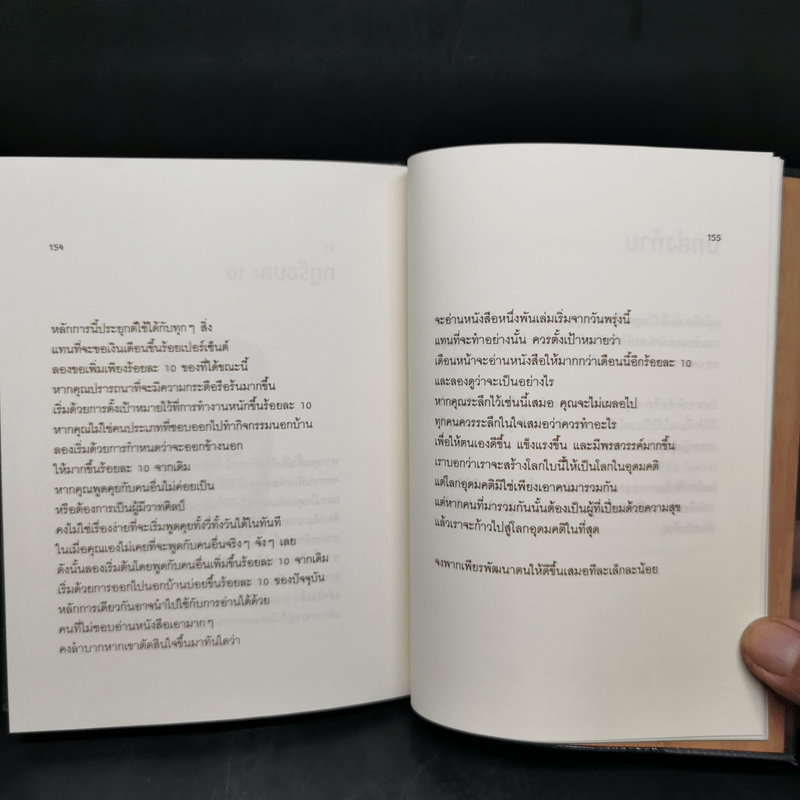 154
หลักการนี้ประยุกต์ใช้ได้กับทุกๆ สิ่ง
แทนที่จะขอเงินเดือนขึ้นร้อยเปอร์เซ็นต์
ลองขอเพิ่มเพียงร้อยละ 10 ของที่ได้ขณะนี้
หากคุณปรารถนาที่จะมีความกระตือรือร้นมากขึ้น
เริ่มด้วยการตั้งเป้าหมายไว้ที่การทำงานหนักขึ้นร้อยละ 10
หากคุณไม่ใช่คนประเภทที่ชอบออกไปทำกิจกรรมนอกบ้าน
ลองเริ่มด้วยการกำหนดว่าจะออกข้างนอก
ให้มากขึ้นร้อยละ 10 จากเดิม
หากคุณพูดคุยกับคนอื่นไม่ค่อยเป็น
หรือต้องการเป็นผู้มีวาทศิลป์
คงไม่ใช่เรื่องง่ายที่จะเริ่มพูดคุยทั้งวี่ทั้งวันได้ในทันที
ในเมื่อคุณเองไม่เคยที่จะพูดกับคนอื่นจริงๆ จังๆ เลย
ดังนั้นลองเริ่มต้นโดยพูดกับคนอื่นเพิ่มขึ้นร้อยละ 10 จากเดิม
เริ่มด้วยการออกไปนอกบ้านบ่อยขึ้นร้อยละ 10 ของปัจจุบัน
หลักการเดียวกันอาจนำไปใช้กับการอ่านได้ด้วย
คนที่ไม่ชอบอ่านหนังสือเอามากๆ
คงลำบากหากเขาตัดสินใจขึ้นมาทันใดว่า
155
จะอ่านหนังสือหนึ่งพันเล่มเริ่มจากวันพรุ่งนี้
แทนที่จะทำอย่างนั้น ควรตั้งเป้าหมายว่า
เดือนหน้าจะอ่านหนังสือให้มากกว่าเดือนนี้อีกร้อยละ 10
และลองดูว่าจะเป็นอย่างไร
หากคุณระลึกไว้เช่นนี้เสมอ คุณจะไม่เผลอไป
ทุกคนควรระลึกในใจเสมอว่าควรทำอะไร
เพื่อให้ตนเองดีขึ้น แข็งแรงขึ้น และมีพรสวรรค์มากขึ้น
เราบอกว่าเราจะสร้างโลกใบนี้ให้เป็นโลกในอุดมคติ
แต่โลกอุดมคติมิใช่เพียงเอาคนมารวมกัน
แต่หากคนที่มารวมกันนั้นต้องเป็นผู้ที่เปี่ยมด้วยความสุข
แล้วเราจะก้าวไปสู่โลกอุดมคติในที่สุด
จงพากเพียรพัฒนาตนให้ดีขึ้นเสมอทีละเล็กละน้อย